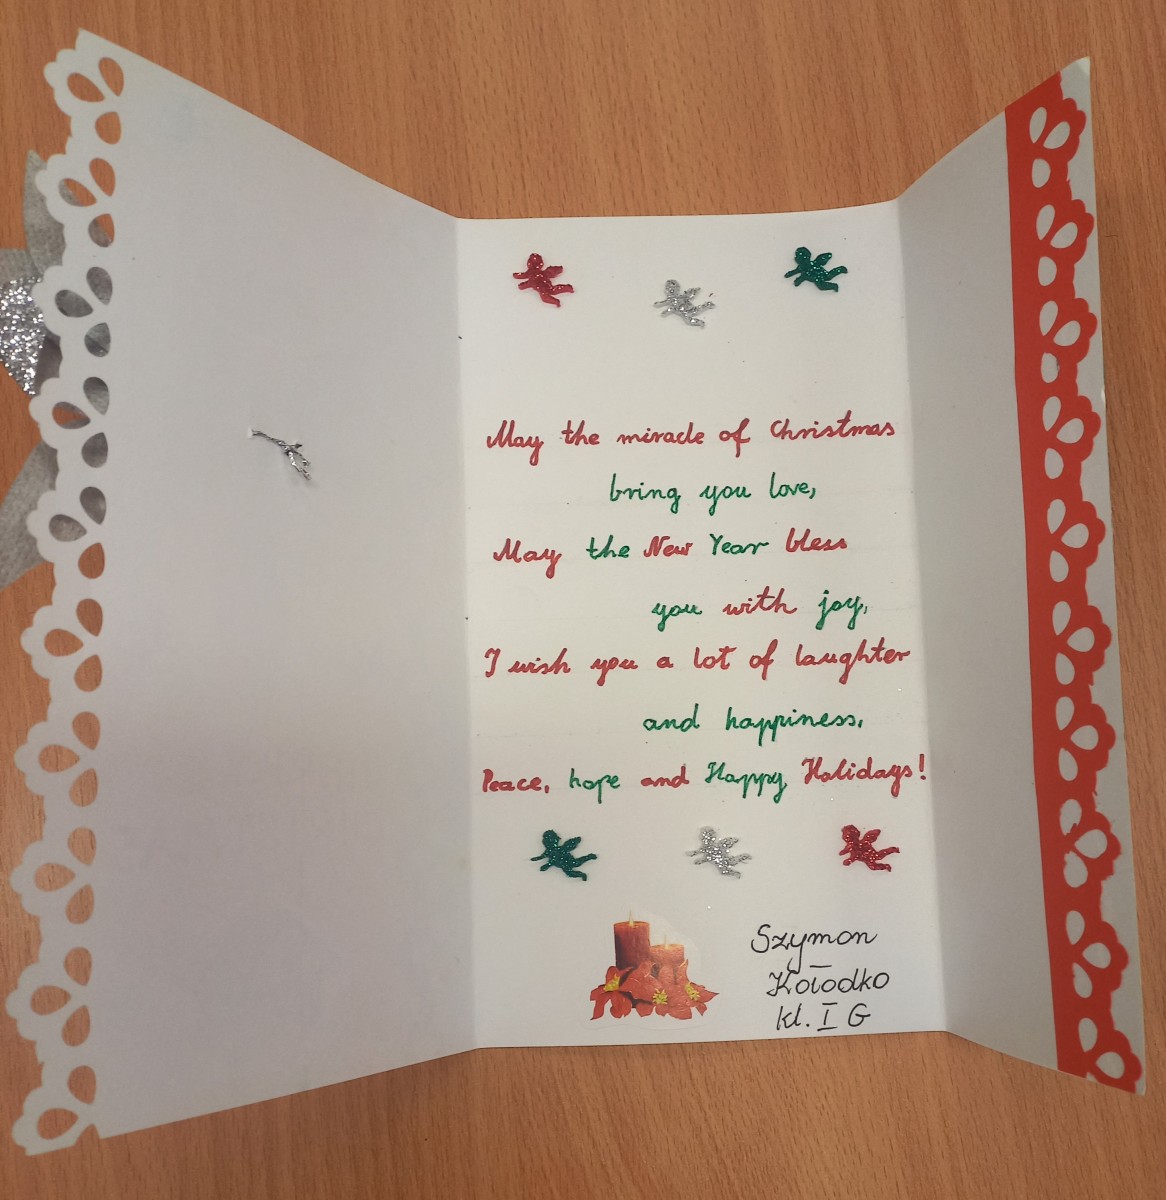 May the miracle of Christmas
bring you love,
May the New Year bless
you with joy,
I wish you a lot of laughter
and happiness.
Peace, hope and Happy Holidays!
Szymon
Kołodko
kl. I G